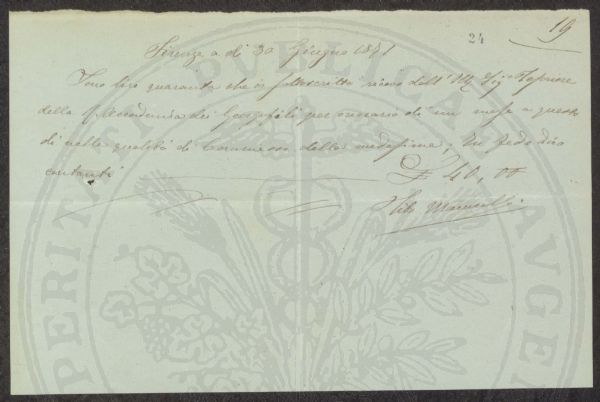 24
19
Firenze a dì 30 Giugno 1871
Sono lire quaranta che io sottoscritto ricevo dall'
della R Accademia dei Georgofili per onorario di un mese a questo
dì nella qualità di Commesso della medesima; In fede dico
contanti £ 40,00
PERITAS PUBLICAE AUGEN